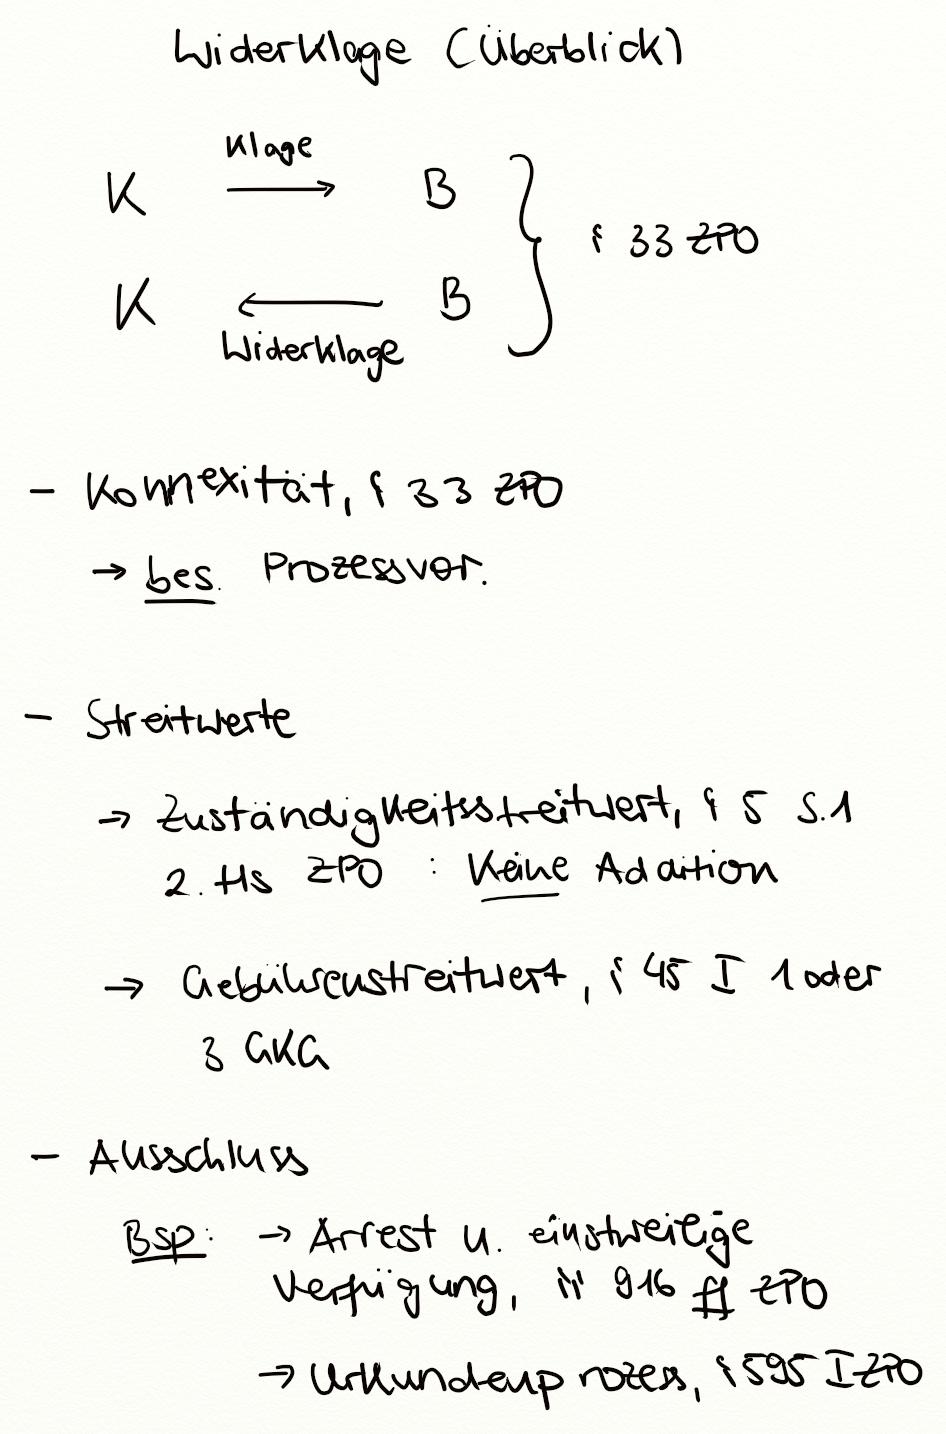 Widerklage (Überblick)
Klage
K → B
§ 33 ZPO
K ← B
Widerklage
- Konnexität, § 33 ZPO
→ bes. Prozessvor.
- Streitwerte
→ Zuständigkeitsstreitwert, § 5 S.1
2. Hs ZPO : Keine Addition
→ Gebührenstreitwert, § 45 I 1 oder
3 GKG
- Ausschluss
Bsp: → Arrest u. einstweilige
Verfügung, §§ 916 ff ZPO
→ Urkundenprozess, § 595 I ZPO